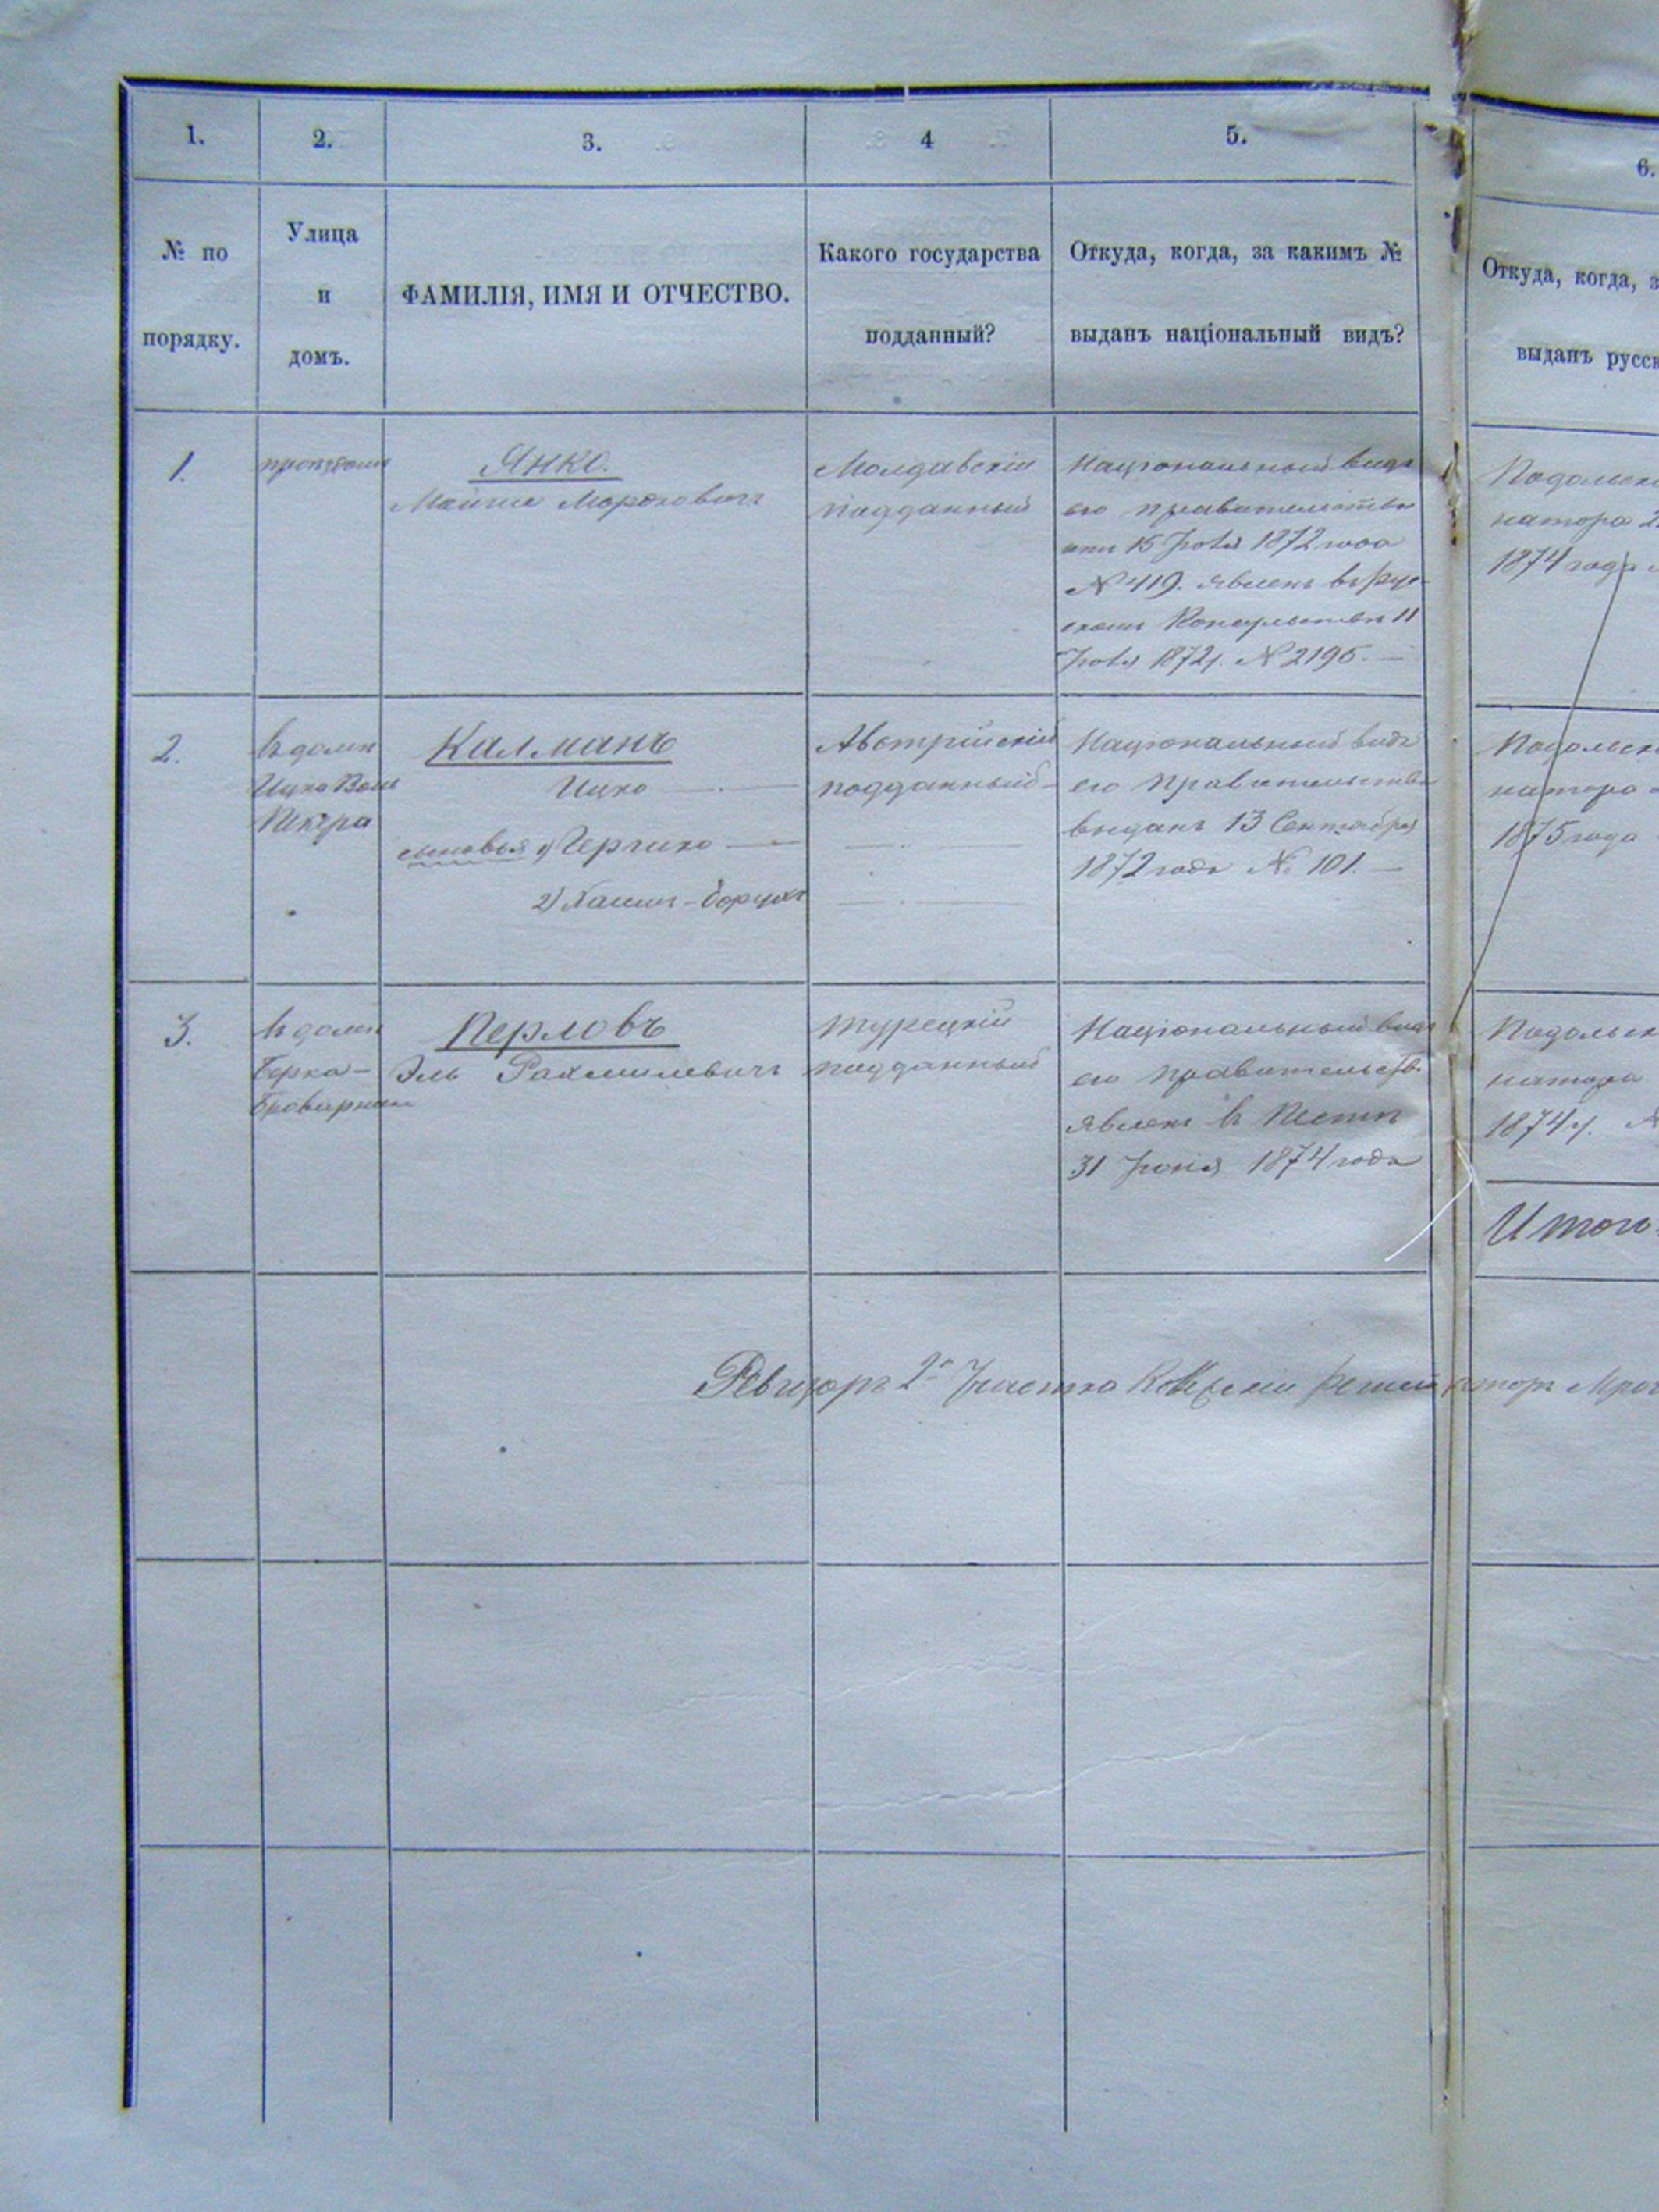 1.
2.
3.
4
5.
6.
№ по
порядку.
Улица
и
домъ.
ФАМИЛІЯ, ИМЯ И ОТЧЕСТВО.
Какого государства
подданный?
Откуда, когда, за какимъ №
выданъ національный видъ?
Откуда, когда, з
выданъ русск
1.
Янко.
Молдавскій
подданный
Національный видъ
его правительства
15 1872 года
№ 419. явленъ въ Рус-
скомъ Консульствѣ 11
1872 г. № 2195. —
Подольск
натора 2
1874 года
2.
въ домѣ
Ицко
Калманъ
Ицко
сыновья 1) Гершко
2) Хаимъ-Борухъ
Австрійскій
подданный
Національный видъ
его правительства
выданъ 13 Сентября
1872 года № 101. —
Подольск
натора
1875 года
3.
въ домѣ
Берка-
Перловъ
Эль Рахмилевичъ
турецкій
подданный
Національный видъ
его правительств.
явленъ въ Пестѣ
31 Іюля 1874 года
Подольск
натора
1874 г. №
Итого
Ревизоръ 2 Участка